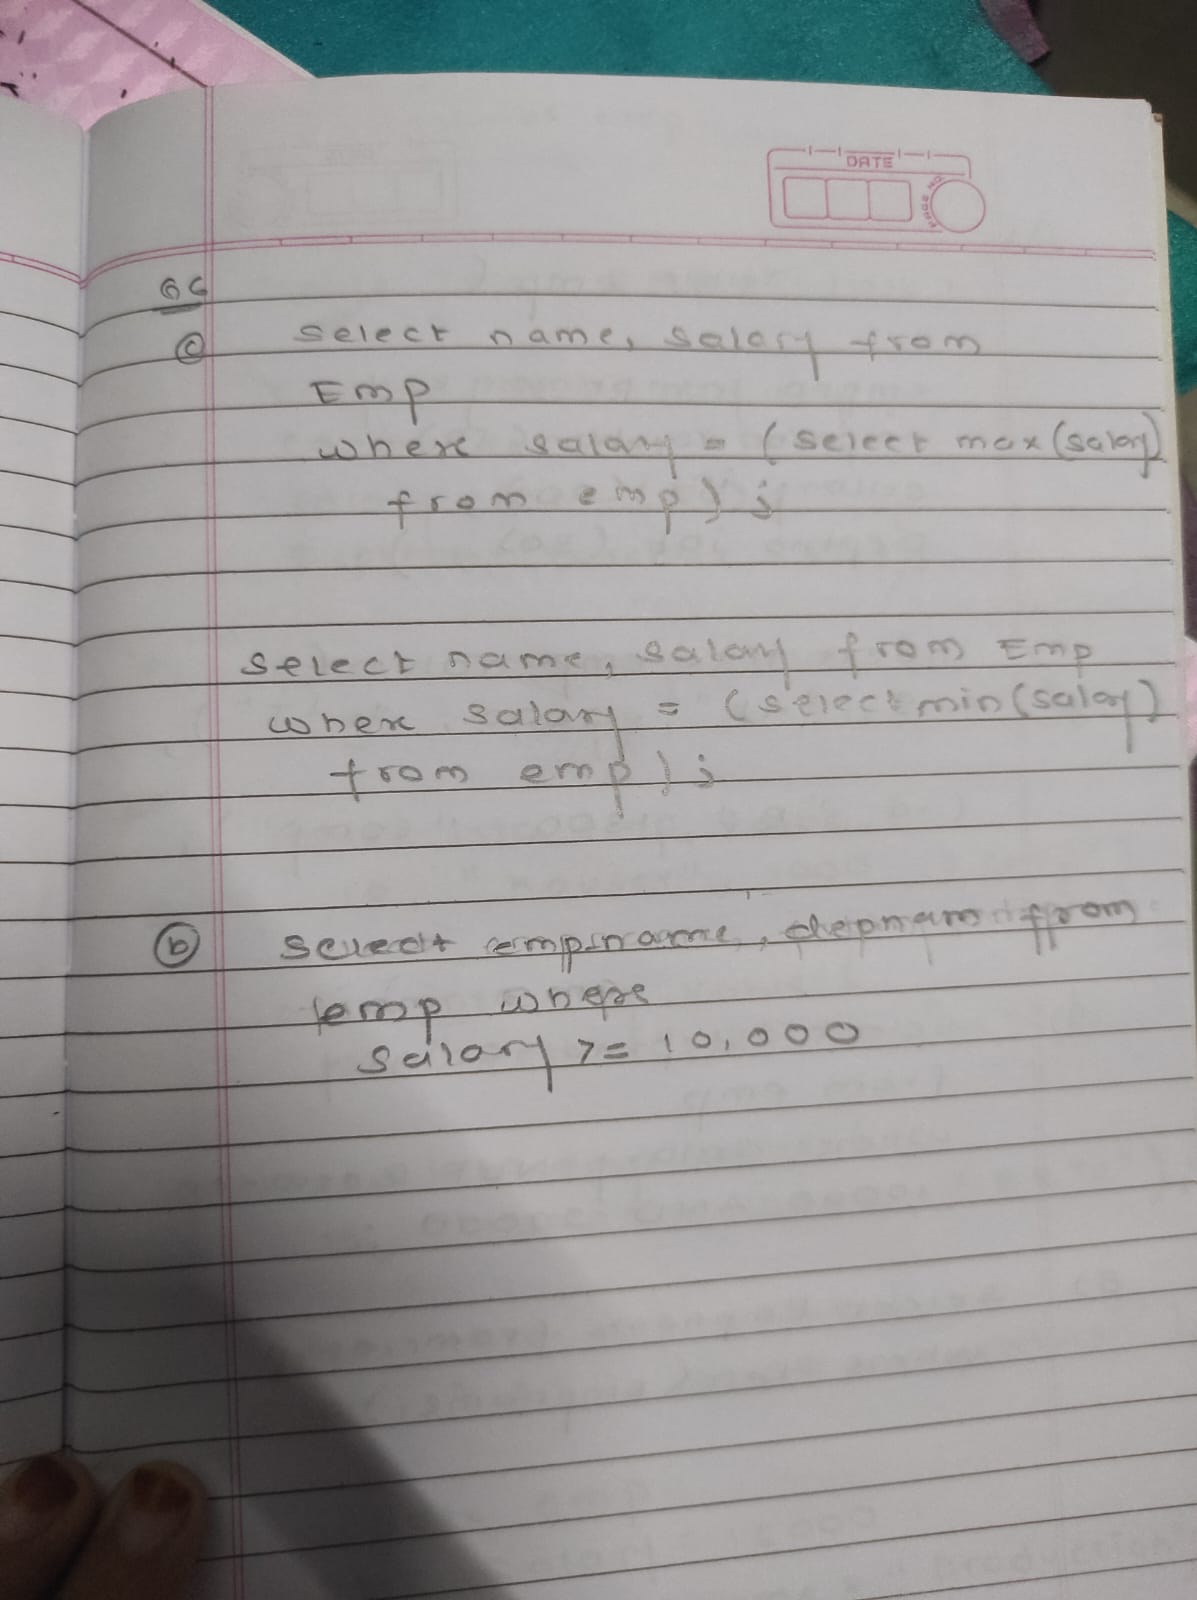 DATE
PAGE NO.
Q6
c select name, salary from
Emp
where salary = (select max(salary)
from emp);
select name, salary from Emp
where salary = (select min(salary)
from emp);
b select empname, from
emp where
salary >= 10,000